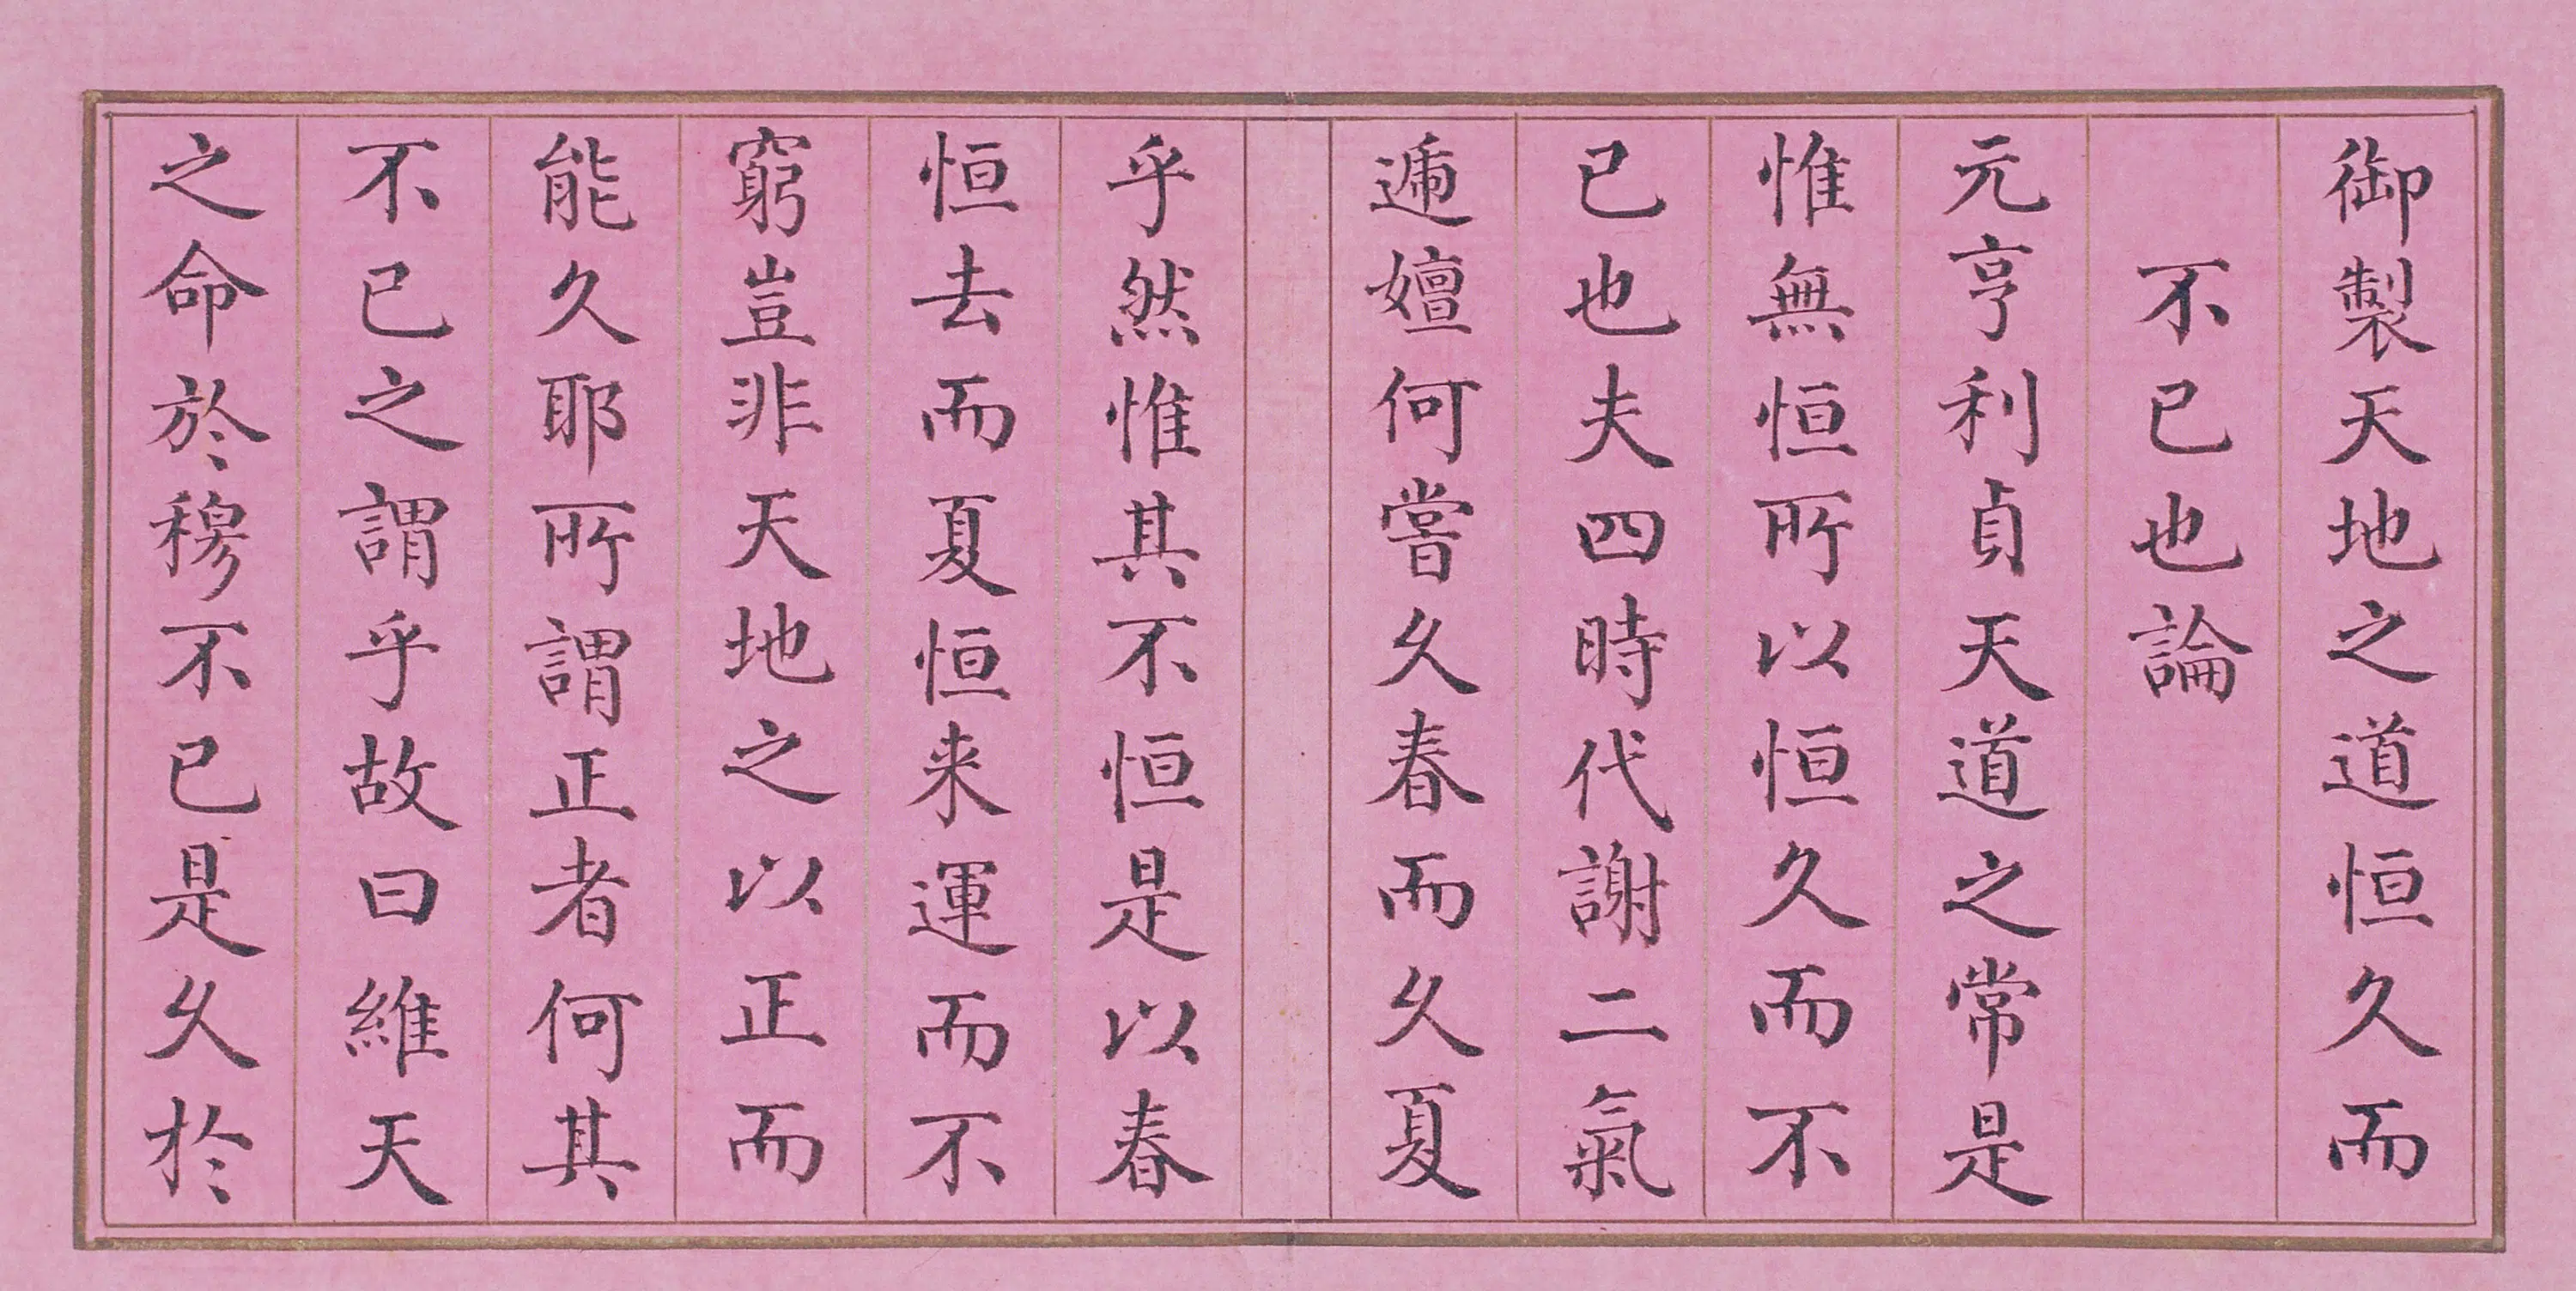 御製天地之道恒久而
不已也論
元亨利貞天道之常是
惟無恒所以恒久而不
已也夫四時代謝二氣
遞嬗何嘗久春而久夏
乎然惟其不恒是以春
恒去而夏恒来運而不
窮豈非天地之以正而
能久耶所謂正者何其
不已之謂乎故曰維天
之命於穆不已是久於